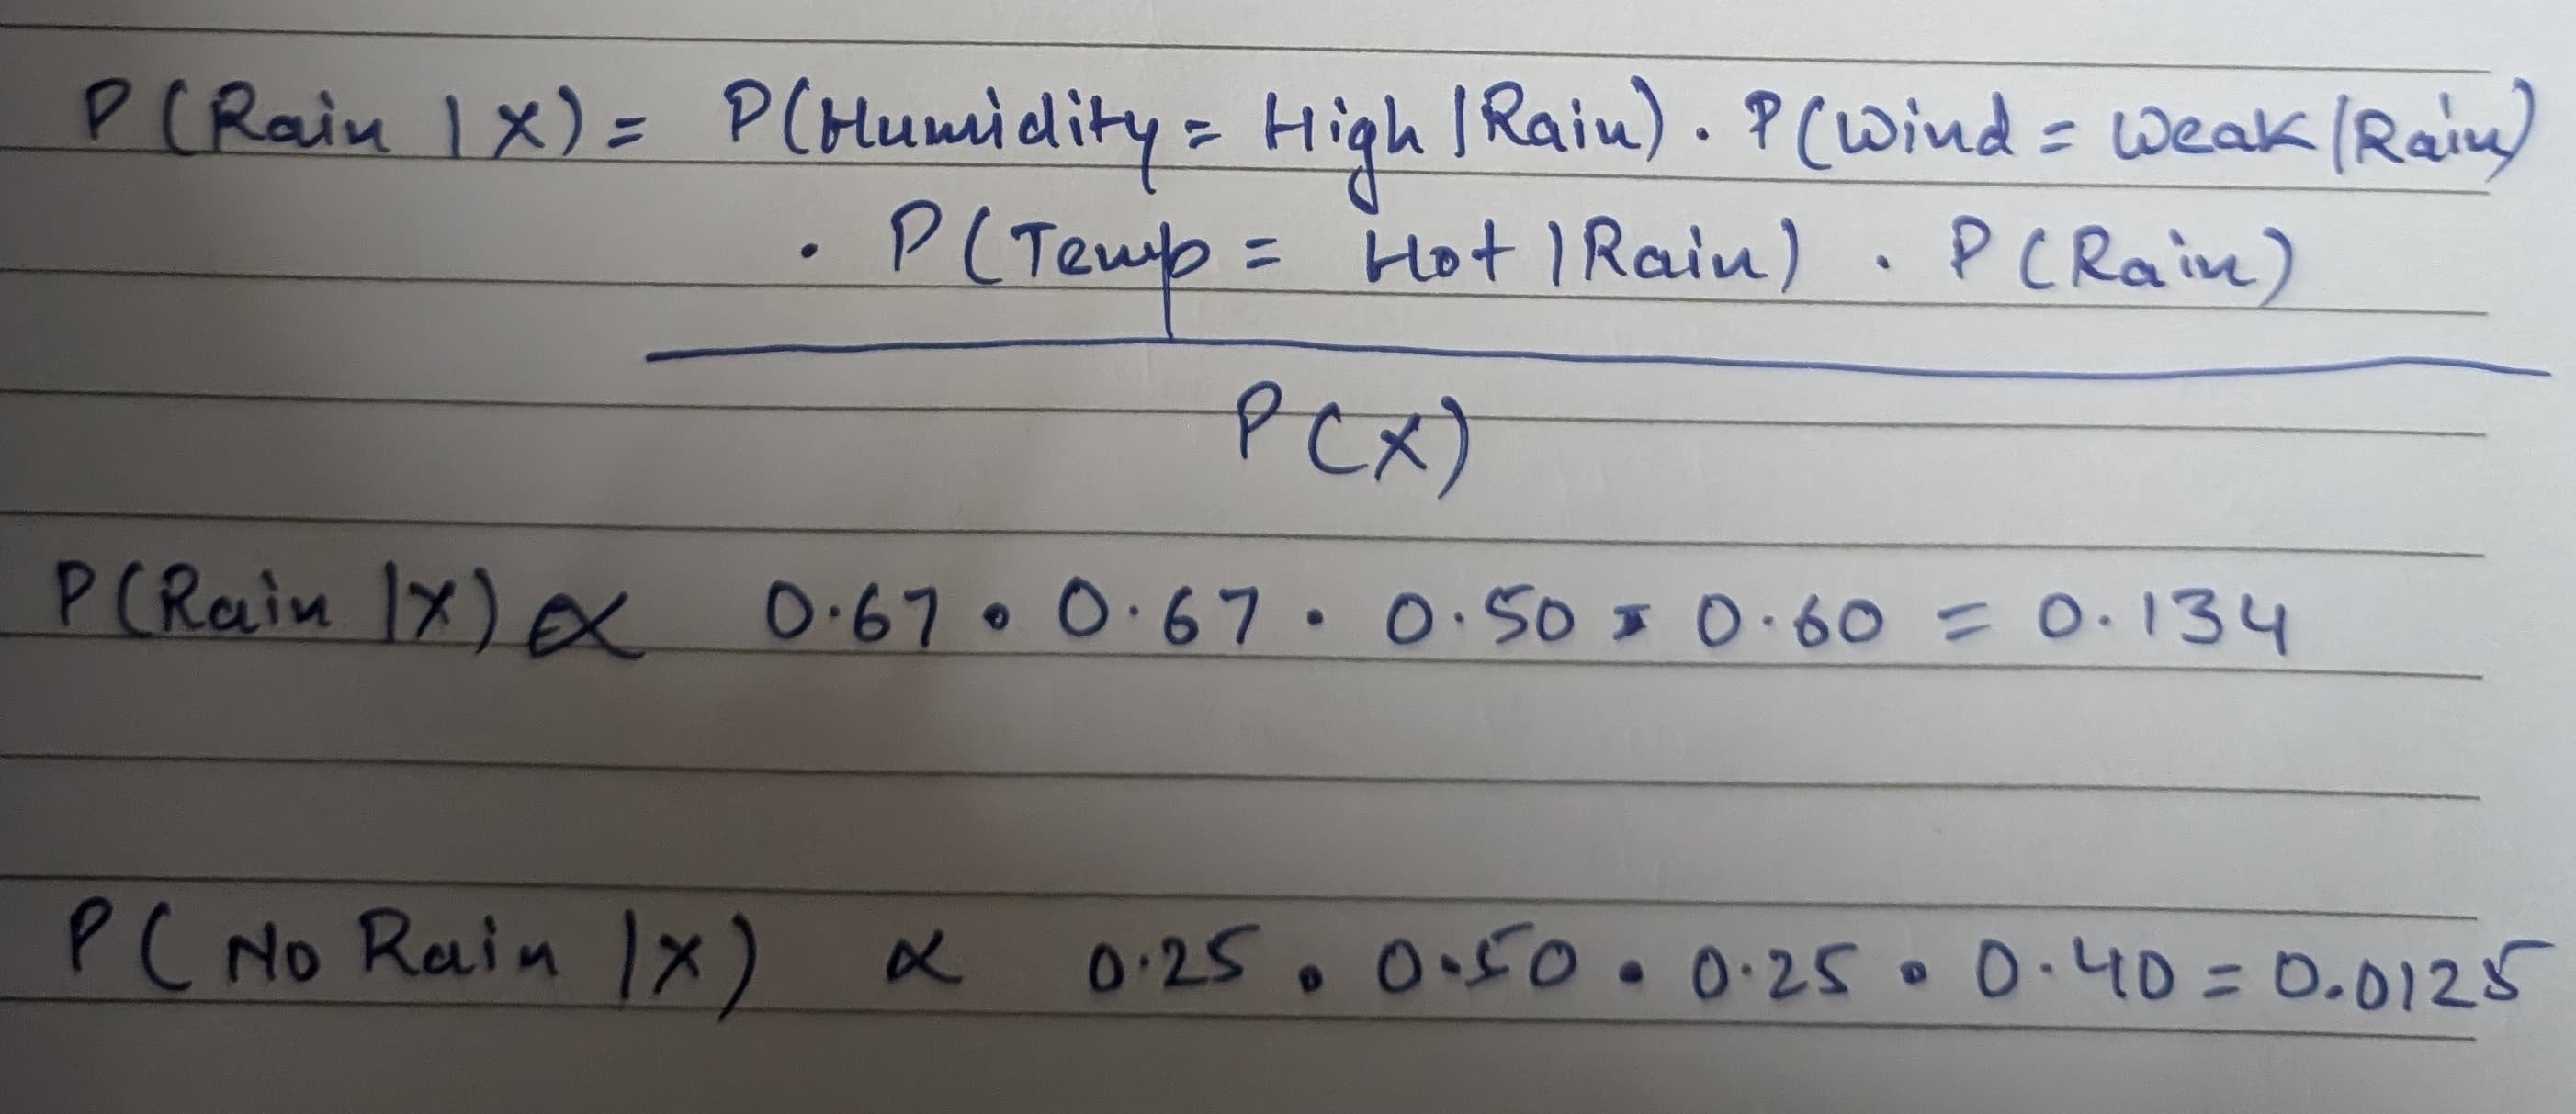 P(Rain | X) = P(Humidity = High | Rain) . P(Wind = Weak | Rain)
. P(Temp = Hot | Rain) . P(Rain)
P(X)
P(Rain | X) ∝ 0.67 . 0.67 . 0.50 . 0.60 = 0.134
P(No Rain | X) ∝ 0.25 . 0.50 . 0.25 . 0.40 = 0.0125